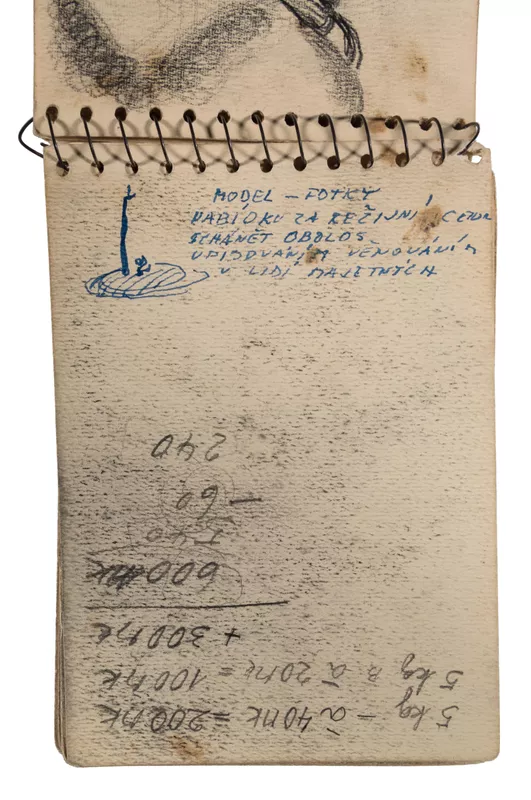 MODEL – FOTKY
NABÍDKU ZA REŽIJNÍ CENU
SEHÁNĚT OBOLOS
UPISOVÁNÍM VĚNOVÁNÍM
U LIDÍ MAJETNÝCH
5 kg – à 40 Mk = 200 Mk
5 kg B à 20 Mk = 100 Mk
+ 300 Mk
600 Mk
540
– 60
240